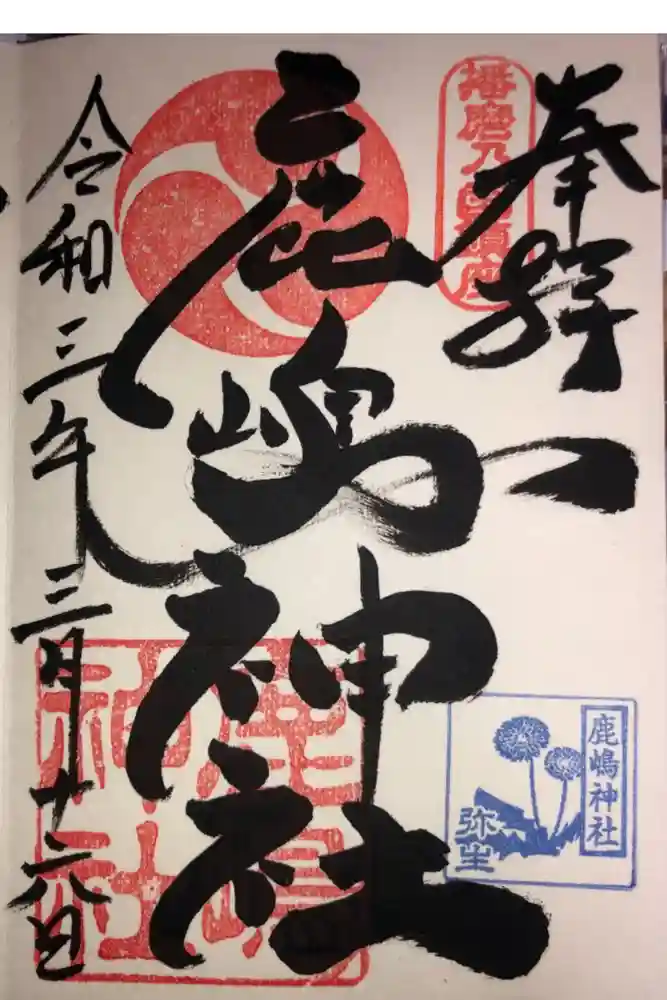 奉拝
播磨乃国鎮座
鹿嶋神社
令和三年三月十六日
鹿嶋神社
鹿嶋神社
弥生